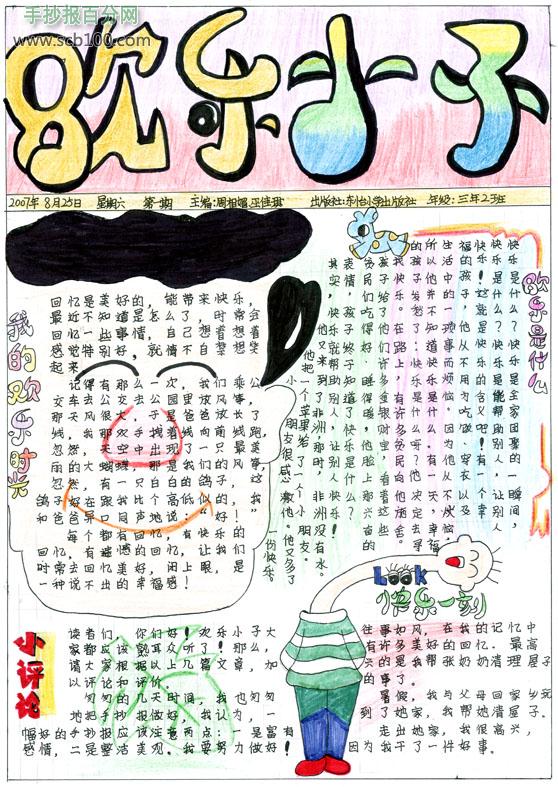 手抄报百分网
www.scb100.com
欢乐小子
2007年8月25日 星期六 第一期 主编:周相媚,巫佳琪 出版社:东怡小学出版社 年级:三年2班
我的欢乐时光
回忆是美好的，能带来快乐，
最近不知道是怎么了，时常会
回忆一些事情，自己想着想着
感觉特别好，就情不自禁想笑
起来。
记得有那么一次，我们乘公
交车去公交去公园放风筝，
那天风很大，于是爸爸放长了
线，我双手找着线向前跑，
忽然，天空中出现了一只最美
丽的大蝴蝶，那是我们的风筝
忽然，有一只白白的鸽子，这
鸽子好在跟我比个高低似的，“我”
和爸爸异口同声地说：“好！
每个都有回忆，有快乐的
回忆，有难感的回忆，让我们
时常去回忆美好，闭上眼，是
一种说不出的幸福感！
欢乐是什么
快乐是什么？快乐是全家团聚的一瞬间，
快乐是什么？快乐是能帮助别人，让别人
快乐！这就是快乐的含义吧！有一个幸
福的孩子，他从不用为吃做、穿衣以及
生活中的一切琐事而烦恼。因为他从不皮恼。
所以他并不知道快乐是什么。有一天，幸福
的孩子发愁了：快乐是什么呀？他决定去寻
找快乐。在路上，有许多贫民向他施舍。
孩子给了他们许多金银财宝，看着这些
贫民们吃得好，睡得暖，他脸上那兴奋的
表情，孩子终于知道了快乐是什么？
其实，快乐就帮助别人，让别人快乐！
他又来到了非洲，那时，非洲没有水。
他把一个苹果给了一个小朋友。
小朋友很感激他。他又多了
一份快乐。
Look
快乐一刻
往事如风，在我的记忆中
有许多美好的回忆。最高
兴的是我帮张奶奶清理屋子
的事了。
暑假，我与父母回家乡玩
到了她家，我帮她清屋子。
走出她家，我很高兴，
因为我干了一件好事。
读者们，你们好！欢乐小子大
家都应该熟耳众听了！那么，
请大家根据以上几篇文章，加
以评论和评价。
匆匆的几天时间，我也匆匆
地把手抄报做好，我认为，一
幅好的手抄报应该注意两点：一是富有
感情，二是整洁美观。我要努力做好！